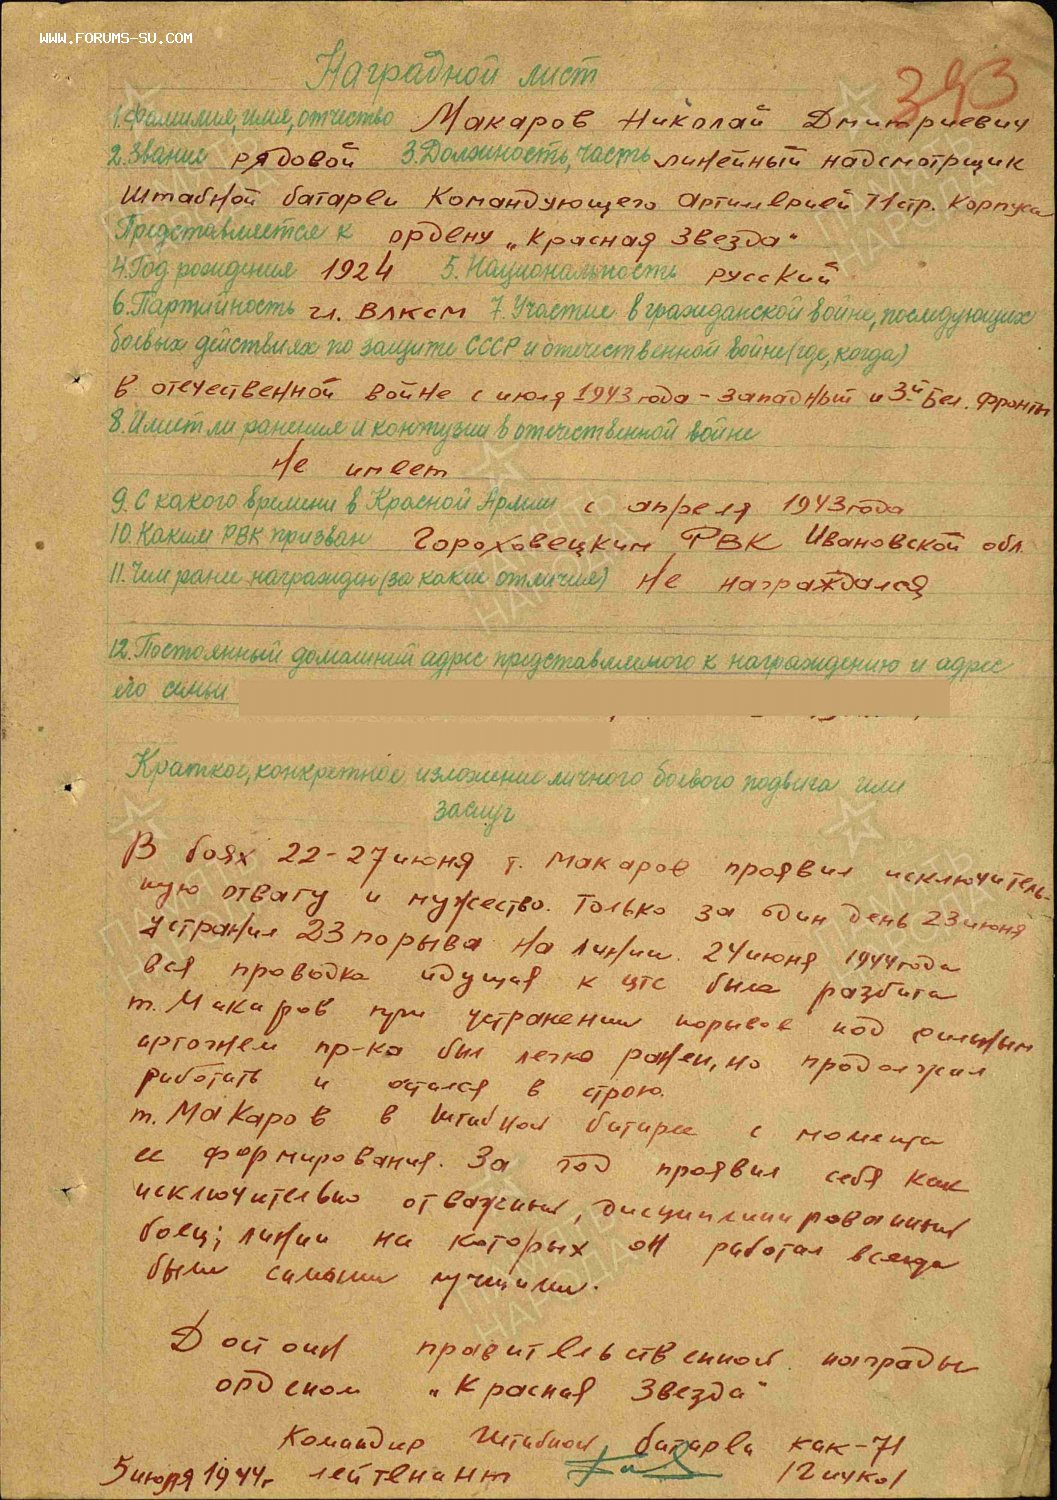 WWW.FORUMS-SU.COM
Наградной лист
393
1. Фамилия, имя, отчество Макаров Николай Дмитриевич
2. Звание рядовой 3. Должность, часть линейный надсмотрщик
Штабной батареи Командующего Артиллерией 71 стр. Корпуса
Представляется к ордену „Красная Звезда“
4. Год рождения 1924 5. Национальность русский
6. Партийность чл. ВЛКСМ 7. Участие в гражданской войне, последующих
боевых действиях по защите СССР и отечественной войне (где, когда)
в отечественной войне с июля 1943 года – Западный и 3й Бел. фронты
8. Имеет ли ранения и контузии в отечественной войне
Не имеет
9. С какого времени в Красной Армии с апреля 1943 года
10. Каким РВК призван Гороховецким РВК Ивановской обл
11. Чем ранее награжден (за какие отличия) Не награждался
12. Постоянный домашний адрес представляемого к награждению и адрес
его семьи
Краткое, конкретное изложение личного боевого подвига или
заслуг
В боях 22-27 июня т. Макаров проявил исключитель-
ную отвагу и мужество. Только за один день 23 июня
устранил 23 порыва на линии. 24 июня 1944 года
вся проводка идущая к цтс была разбита
т. Макаров при устранении порывов под сильным
артогнем пр-ка был легко ранен, но продолжал
работать и остался в строю.
т. Макаров в Штабной батарее с момента
ее формирования. За год проявил себя как
исключительно отважный, дисциплинированный
боец; линии на которых он работал всегда
были самыми лучшими.
Достоин правительственной награды
орденом „Красная Звезда“
Командир Штабной батареи как-71
5 июля 1944г лейтенант
ПАМЯТЬ НАРОДА